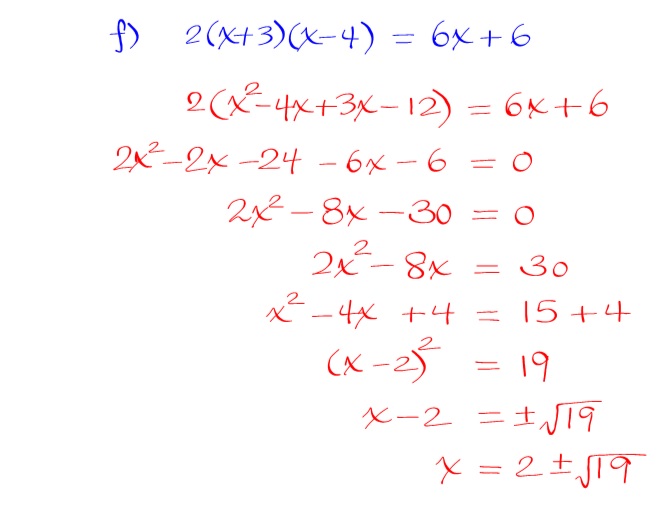 f) 2(x+3)(x-4) = 6x+6
2(x²-4x+3x-12) = 6x+6
2x²-2x-24-6x-6 = 0
2x²-8x-30 = 0
2x²-8x = 30
x²-4x+4 = 15+4
(x-2)² = 19
x-2 = ±√19
x = 2±√19